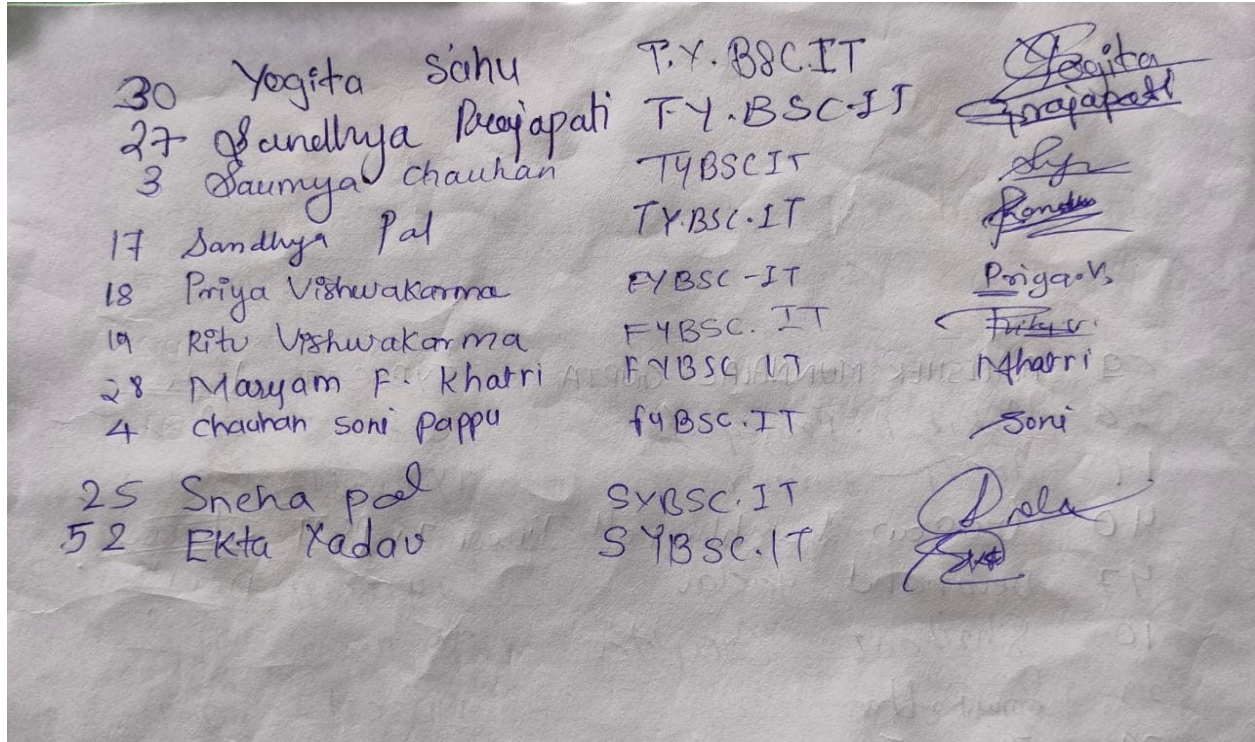 30 Yogita Sahu T.Y.BSC.IT Yogita
27 Sandhya Prajapati T.Y.BSC-IT Prajapati
3 Saumya Chauhan TYBSCIT
17 Sandhya Pal TY.BSC.IT
18 Priya Vishwakarma FYBSC-IT Priya.V.
19 Ritu Vishwakarma FYBSC.IT
28 Maryam F. Khatri FYBSC IT Mhatri
4 chauhan soni pappu fyBSC.IT Soni
25 Sneha pal SYBSC.IT
52 Ekta Yadav SYBSC.IT